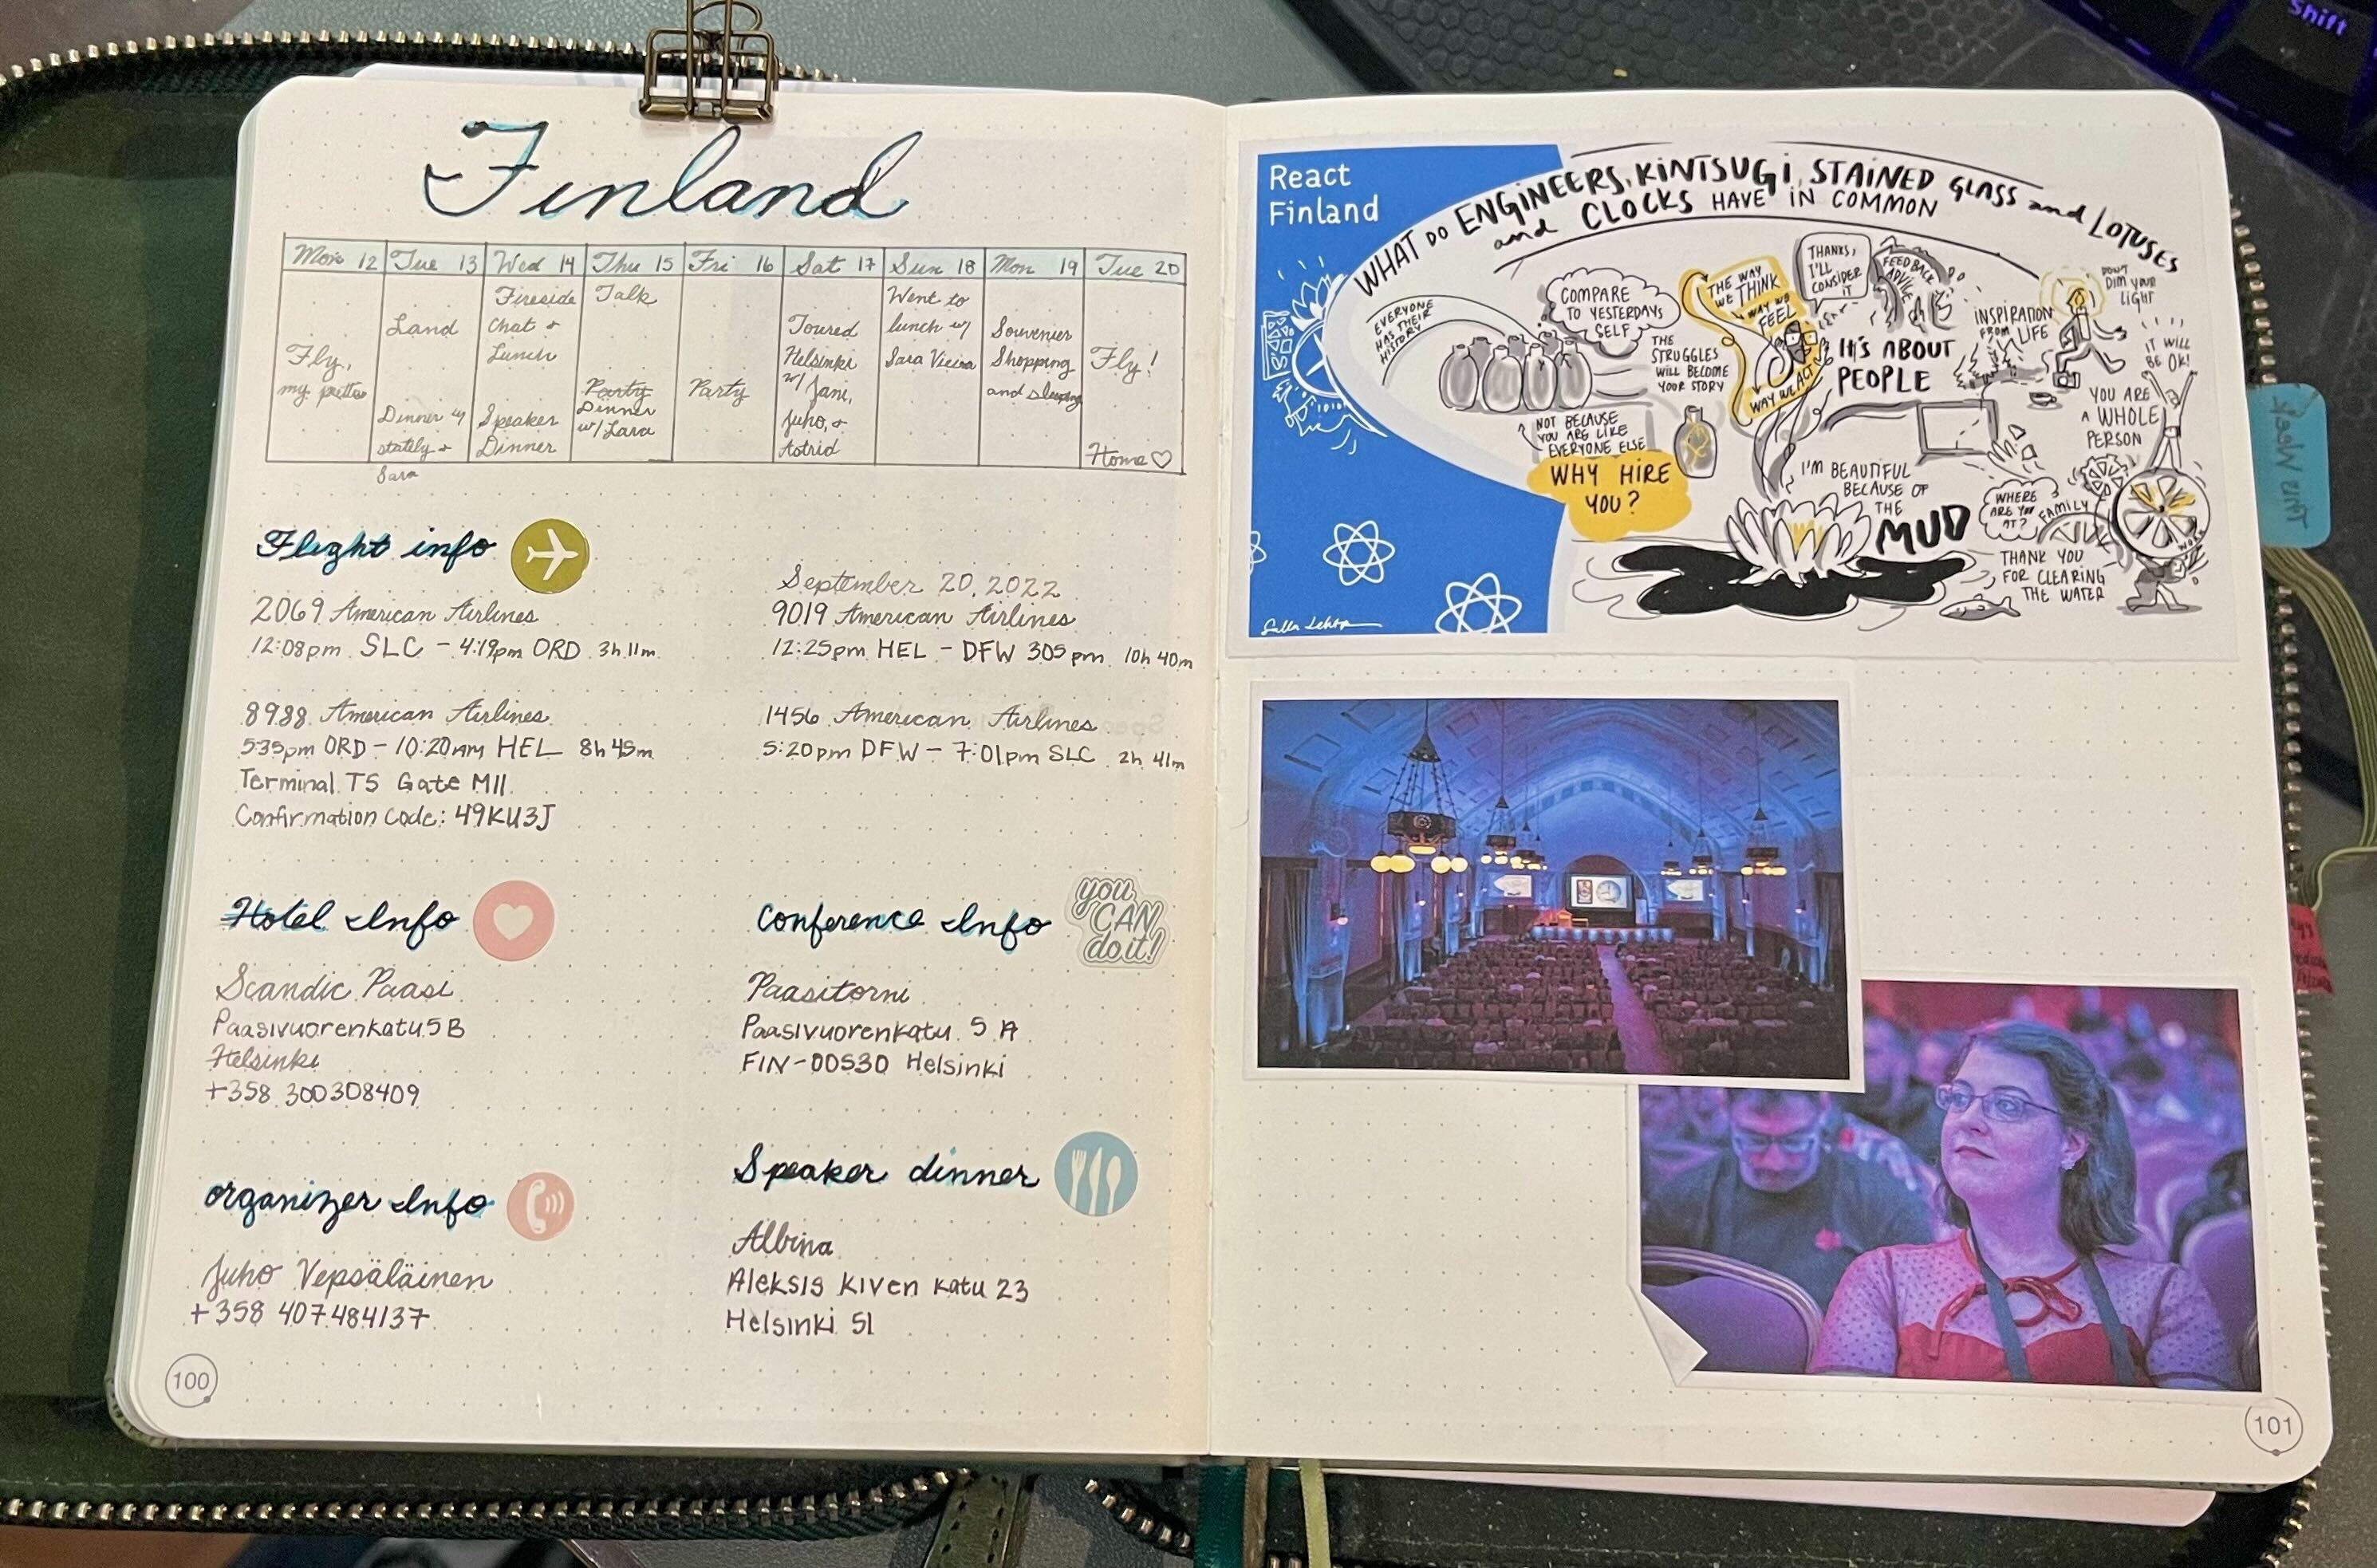 Shift
Finland
Mon 12 Tue 13 Wed 14 Thu 15 Fri 16 Sat 17 Sun 18 Mon 19 Tue 20
Fly,
my pretties
Land
Dinner w/
stately +
Sara
Fireside
Chat +
Lunch
Speaker
Dinner
Talk
Party
Dinner
w/ Lara
Party
Toured
Helsinki
w/ Jani,
Juho, +
Astrid
Went to
lunch w/
Sara Vieira
Souvenier
Shopping
and sleeping
Fly!
Home♡
Flight info
2069 American Airlines
12:08pm SLC - 4:19pm ORD 3h 11m
8988 American Airlines
535pm ORD - 10:20am HEL 8h 45m
Terminal T5 Gate M11
Confirmation Code: 49KU3J
September 20, 2022
9019 American Airlines
12:25pm HEL - DFW 305pm 10h 40m
1456 American Airlines
5:20pm DFW - 7:01pm SLC 2h 41m
Hotel Info
Scandic Paasi
Paasivuorenkatu 5B
Helsinki
+358 300308409
Conference Info
you
CAN
do it!
Paasitorni
Paasivuorenkatu 5 A
FIN-00530 Helsinki
organizer Info
Juho Vepsäläinen
+358 407484137
Speaker dinner
Albina
Aleksis Kiven Katu 23
Helsinki 51
100
React
Finland
WHAT DO ENGINEERS, KINTSUGI, STAINED GLASS and LOTUSES
and CLOCKS HAVE IN COMMON
EVERYONE
HAS THEIR
HISTORY
COMPARE
TO YESTERDAYS
SELF
THE
STRUGGLES
WILL BECOME
YOUR STORY
NOT BECAUSE
YOU ARE LIKE
EVERYONE ELSE
WHY HIRE
YOU?
THE WAY
WE THINK
WAY WE
FEEL
WAY WE ACT
THANKS,
I'LL
CONSIDER
IT
FEEDBACK
ADVICE
IT'S ABOUT
PEOPLE
INSPIRATION
FROM LIFE
DON'T
DIM YOUR
LIGHT
IT WILL
BE OK!
YOU ARE
A WHOLE
PERSON
I'M BEAUTIFUL
BECAUSE OF
THE
MUD
WHERE
ARE YOU
AT?
FAMILY
WORK
THANK YOU
FOR CLEARING
THE WATER
This Week
101